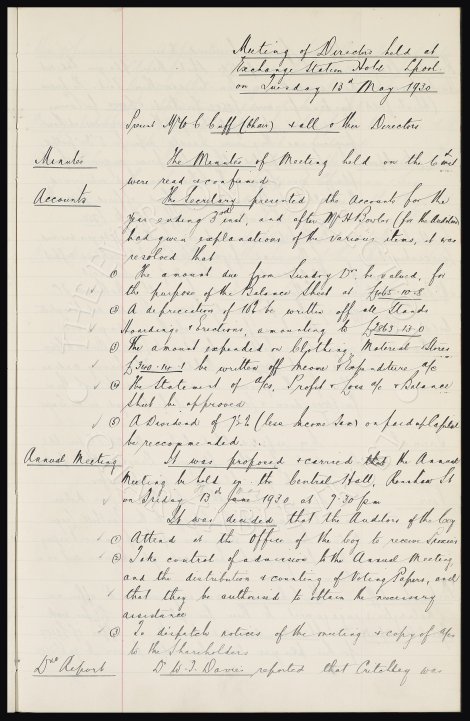 Meeting of Directors held at
Exchange Station Hotel Lpool
on Tuesday 13th May 1930
Present Mr W C Cuff (Chair) & all other Directors
Minutes The Minutes of Meeting held on the 6th inst
were read & confirmed
Accounts The Secretary presented the Accounts for the
year ending 3rd inst, and after Mr H Bowler (for the Auditors)
had given explanations of the various items, it was
resolved that
① The amount due from Sundry Drs. be valued, for
the purpose of the Balance Sheet at £965-10-8
② A depreciation of 10% be written off all Stands
Hoardings & Erections, amounting to £2863-13-0
③ The amount expended on Clothing, Material & Stores
£340-14-1 be written off Income & Expenditure a/c
④ The Statement of a/cs, Profit & Loss a/c & Balance
Sheet be approved
⑤ A Dividend of 7½% (less Income Tax) on paid up Capital
be reccommended
Annual Meeting It was proposed & carried that the Annual
Meeting be held in the Central Hall, Renshaw St
on Friday 13th June 1930 at 7.30 pm
It was decided that the Auditors of the Coy
① Attend at the Office of the Coy to receive Proxies
② Take control of admission to the Annual Meeting
and the distribution & counting of Voting Papers, and
that they be authorised to obtain the necessary
assistance
③ To dispatch notices of the meeting & copy of a/cs
to the Shareholders
Drs Report Dr W. J. Davies reported that Critchley was